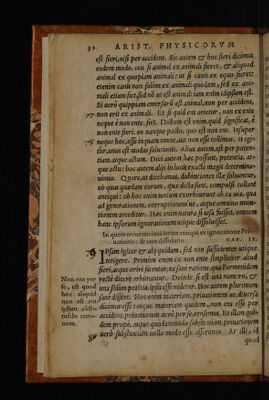 32 ARIST. PHYSICORVM
est fieri, nisi per accidens. Sic autem & hoc fieri dicimus
eodem modo, ceu si animal ex animali fieret, & aliquod
animal ex quopiam animali: ut si canis ex equo fieret:
etenim canis non solum ex animali quodam, sed ex ani-
mali etiam fiet, sed nõ ut est animal: iam enim id ipsum est.
Si uero quippiam emersurũ est animal, non per accidens,
non erit ex animali. Et si quid ens orietur, non ex ente
neque è non ente, fiet. Dictum est enim quid significat, è
non ente fieri, eo nanque pacto, quo est non ens. Insuper
neque hoc, esse inquam omne, aut non esse tollimus.
unus est modus soluendi. Alius autem, est per poten-
tiam, atque actum. Dici autem hoc possunt, potentia, at-
que actu: hoc autem alijs in locis exacte magis determina-
uimus. Quare, ut docebamus, dubitationes istæ soluuntur,
ob quas quædam eorum, quæ dicta sunt, compulsi tollunt
antiqui: ob hoc enim tantum exorbitarunt ab ea uia, quæ
ad generationem, corruptionem'que, atque omnino mu-
tationem acceditur. Hæc enim natura si uisa fuisset, omnem
hanc ipsorum ignorationem utique dissoluisset.
In quem errorem inciderint antiqui ex ignoratione Pri-
uationis: & eius dissolutio. CAP. IX.
IPsam igitur & alij quidam, sed non sufficienter utique
tetigere. Primum enim ex non ente simpliciter aliud
fieri, qua uerũ fatentur, ea sane ratione, qua Parmenidem
recte dixisse arbitrantur. Deinde si est una numero, &
una solum potestate, ipsis esse uidetur. Hoc autem plurimum
sane differt. Nos enim materiam, priuationem'que diuersa
dicimus esse: atque materiam quidem, non ens esse per
accidens, priuationem uero per se censemus. Et illam qui-
dem prope, atque quodammodo substantiam, priuationem
uero substantiam nullo modo esse asserimus. At illi, id
quod
Non ens per
se, est quod
hoc aliquid
non est aut
ipsam